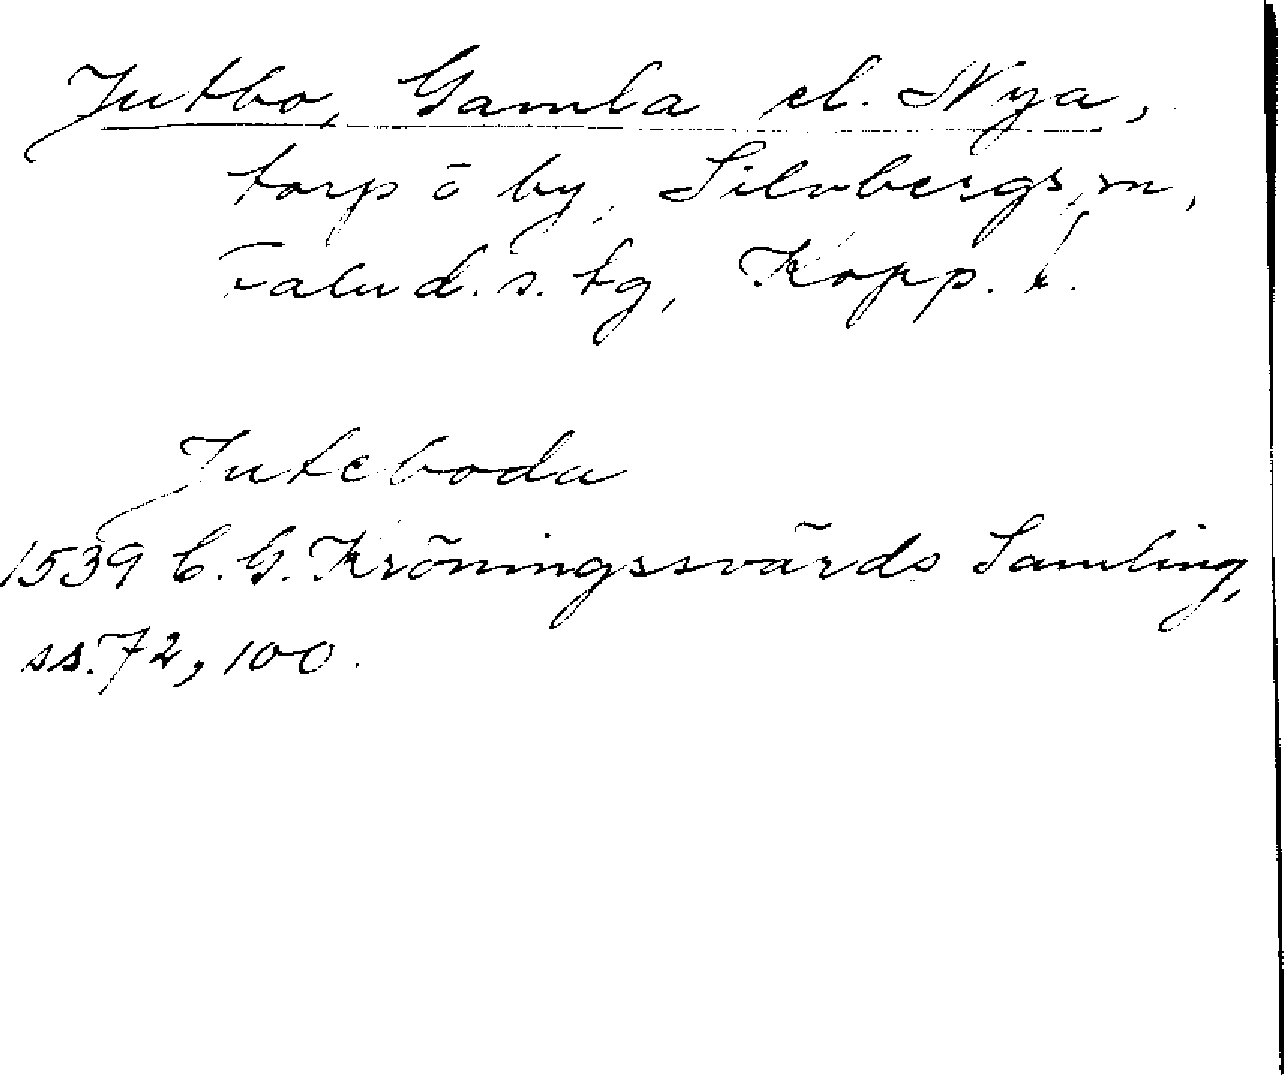 Jutbo, Gamla el. Nya,
torp o by, Silvbergs sn,
Falu d. s. tg, Kopp. l.
Juteboda
1539 C. G. Kröningssvärds Samling,
ss. 72, 100.